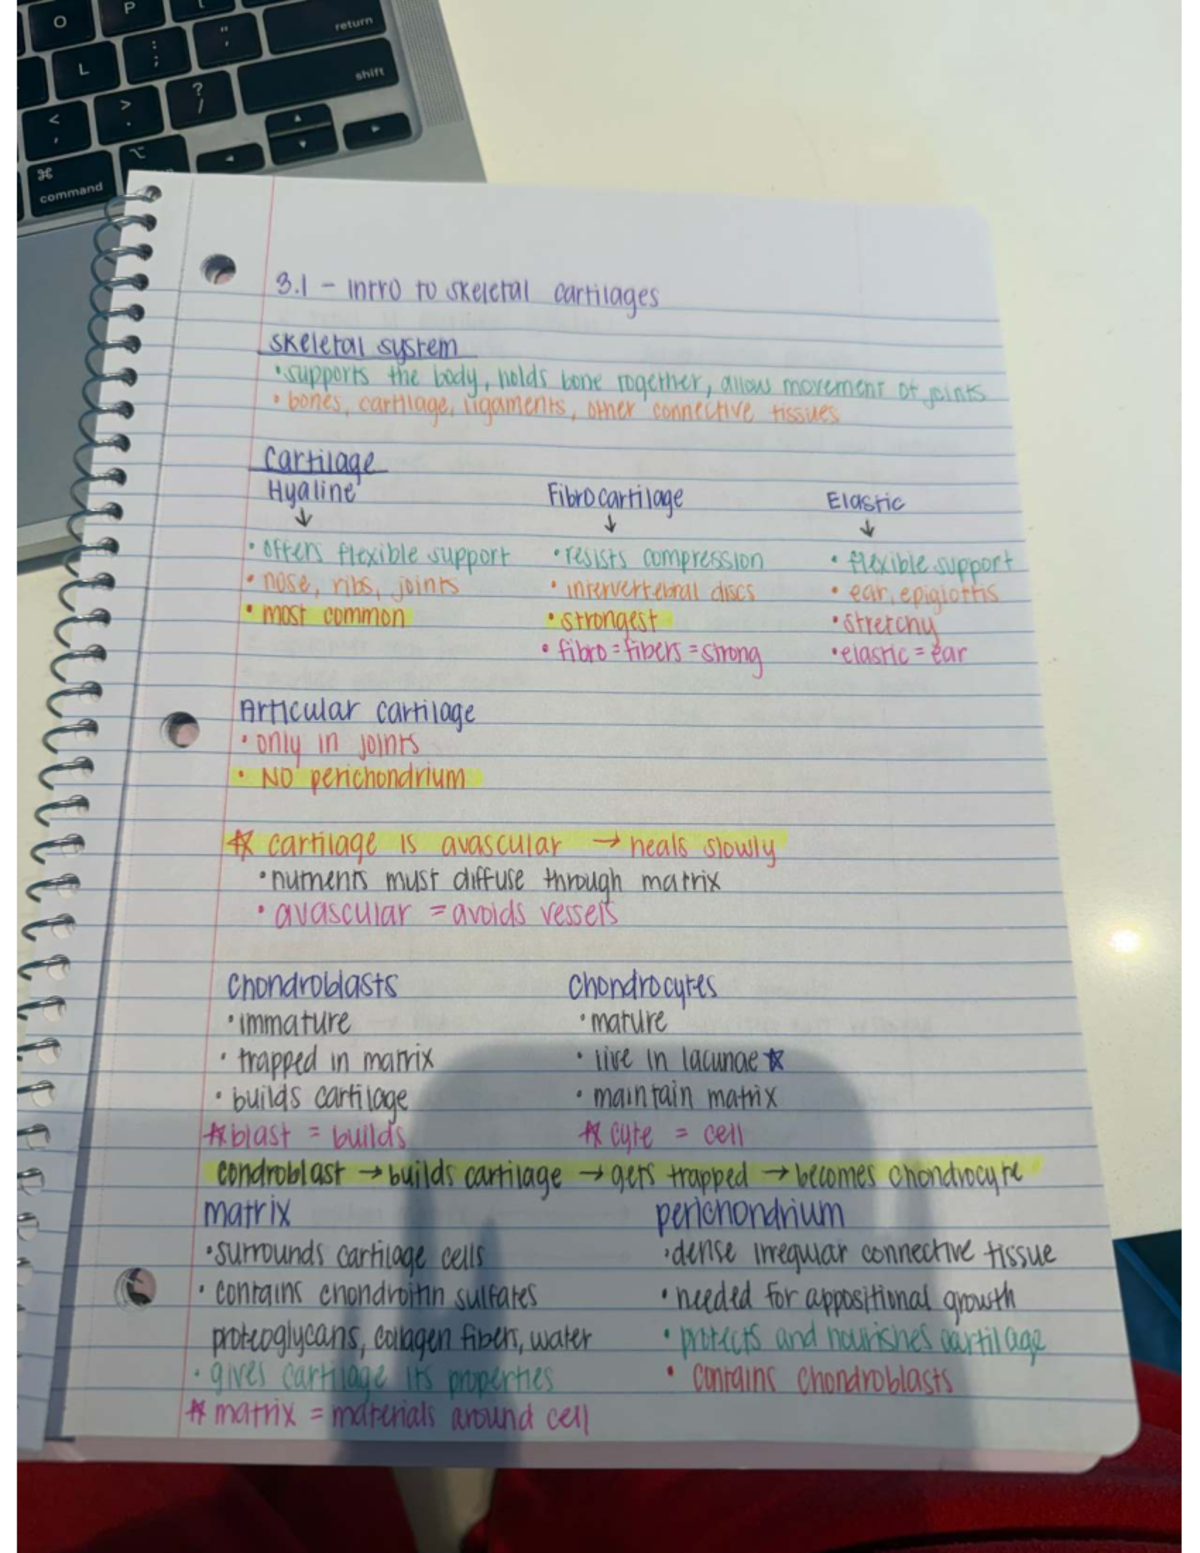 O P
return
L : ;
" '
shift
< ,
> .
? /
⌘
command
⌥
3.1 - Intro to skeletal cartilages
skeletal system
• supports the body, holds bone together, allow movement of joints
• bones, cartilage, ligaments, other connective tissues
Cartilage
Hyaline Fibrocartilage Elastic
↓ ↓ ↓
• offers flexible support • resists compression • flexible support
• nose, ribs, joints • intervertebral discs • ear, epiglottis
• most common • strongest • stretchy
• fibro = fibers = strong • elastic = ear
Articular cartilage
• only in joints
• NO perichondrium
☆ cartilage is avascular → heals slowly
• nutrients must diffuse through matrix
• avascular = avoids vessels
Chondroblasts chondrocytes
• immature • mature
• trapped in matrix • live in lacunae ☆
• builds cartilage • maintain matrix
☆ blast = builds ☆ cyte = cell
condroblast → builds cartilage → gets trapped → becomes chondrocyte
matrix perichondrium
• surrounds cartilage cells • dense irregular connective tissue
• contains chondroitin sulfates • needed for appositional growth
proteoglycans, collagen fibers, water • protects and nourishes cartilage
• gives cartilage its properties • contains chondroblasts
☆ matrix = materials around cell